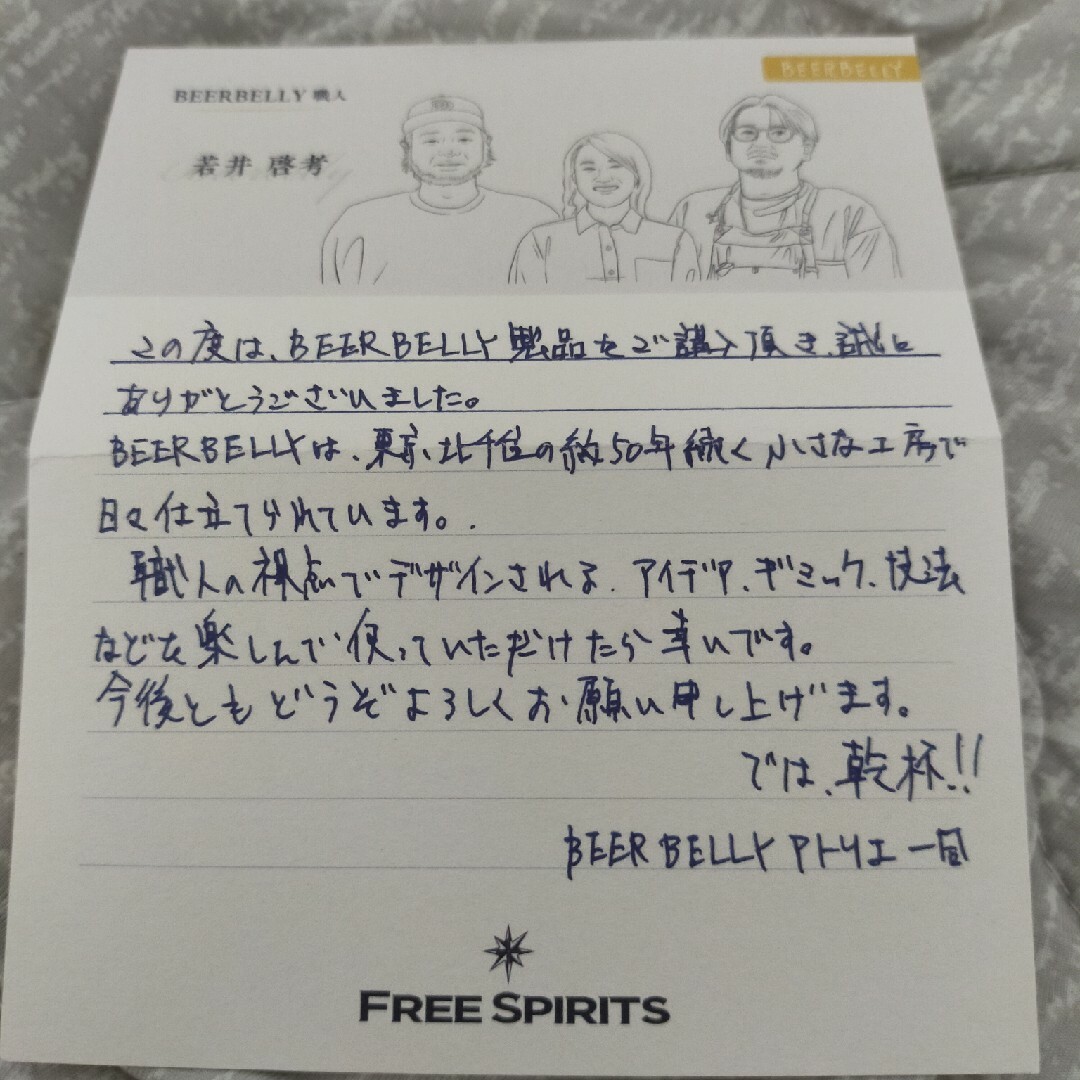 BEERBELLY
BEERBELLY 職人
若井 啓考
この度は、BEERBELLY 製品をご購入頂き、誠に
ありがとうございました。
BEERBELLYは、東京、北千住の約50年続く小さな工房で
日々仕立てられています。
職人の視点でデザインされる、アイデア、ギミック、技法
などを楽しんで使っていただけたら幸いです。
今後ともどうぞよろしくお願い申し上げます。
では、乾杯!!
BEERBELLY アトリエ一同
FREE SPIRITS